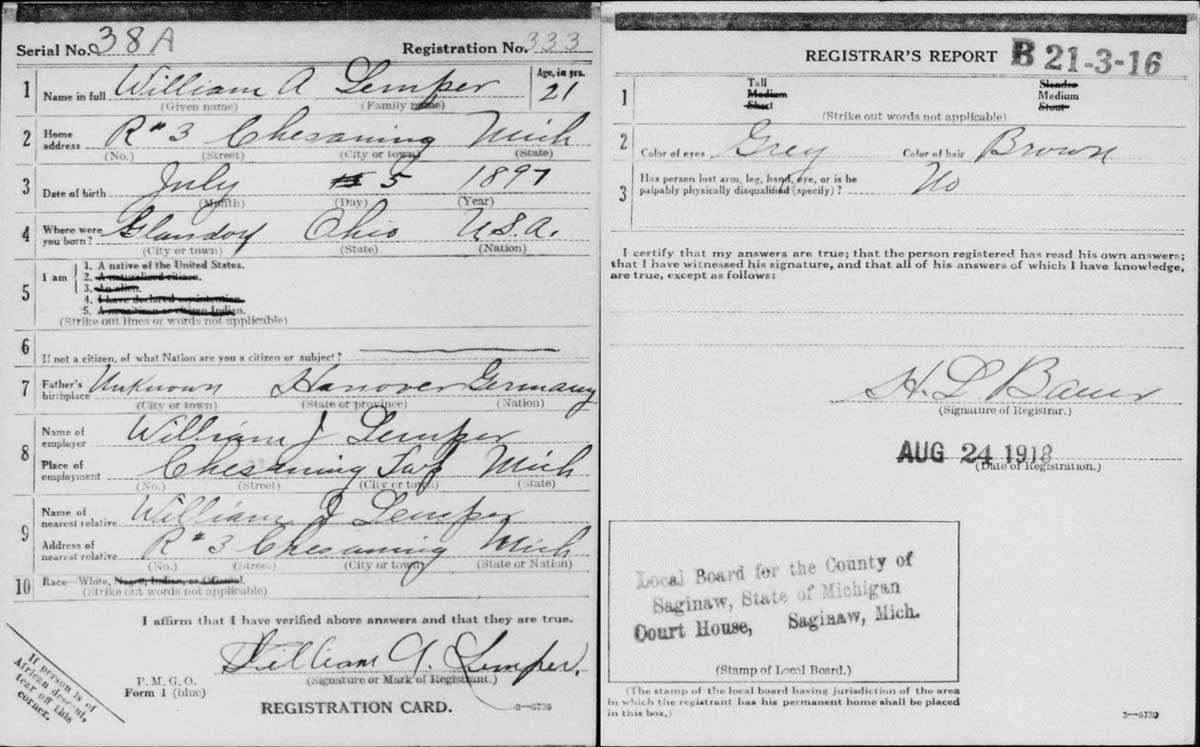 Serial No. 38A Registration No. 333
1 Name in full William A Lemper Age, in yrs. 21
(Given name) (Family name)
2 Home address R#3 Chesaning Mich
(No.) (Street) (City or town) (State)
3 Date of birth July 5 1897
(Month) (Day) (Year)
4 Where were you born? Glandorf Ohio U.S.A.
(City or town) (State) (Nation)
5 I am
1. A native of the United States.
2. A naturalized citizen.
3. An alien.
4. I have declared my intention.
5. A noncitizen or citizen Indian.
(Strike out lines or words not applicable)
6 If not a citizen, of what Nation are you a citizen or subject?
7 Father's birthplace Unknown Hanover Germany
(City or town) (State or province) (Nation)
8 Name of employer William J Lemper
Place of employment Chesaning Twp Mich
(No.) (Street) (City or town) (State)
9 Name of nearest relative William J Lemper
Address of nearest relative R#3 Chesaning Mich
(No.) (Street) (City or town) (State or Nation)
10 Race—White, Negro, Indian, or Oriental.
(Strike out words not applicable)
I affirm that I have verified above answers and that they are true.
William A. Lemper.
(Signature or Mark of Registrant.)
P. M. G. O.
Form 1 (blue)
REGISTRATION CARD. 3—5739
If person is of
African descent,
tear off this
corner.
REGISTRAR'S REPORT B 21-3-16
1 Tall Slender
Medium Medium
Short Stout
(Strike out words not applicable)
2 Color of eyes Grey Color of hair Brown
3 Has person lost arm, leg, hand, eye, or is he
palpably physically disqualified (specify)? No
I certify that my answers are true; that the person registered has read his own answers;
that I have witnessed his signature, and that all of his answers of which I have knowledge,
are true, except as follows:
H. L. Bauer
(Signature of Registrar.)
AUG 24 1918
(Date of Registration.)
Local Board for the County of
Saginaw, State of Michigan
Court House, Saginaw, Mich.
(Stamp of Local Board.)
(The stamp of the local board having jurisdiction of the area
in which the registrant has his permanent home shall be placed
in this box.) 3—5739